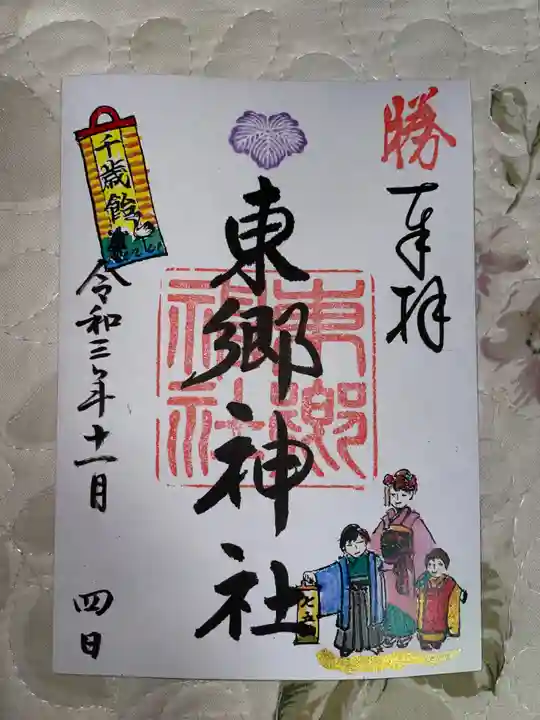 勝
奉拝
東郷神社
東郷
神社
千歳飴
令和三年十一月
四日
七五